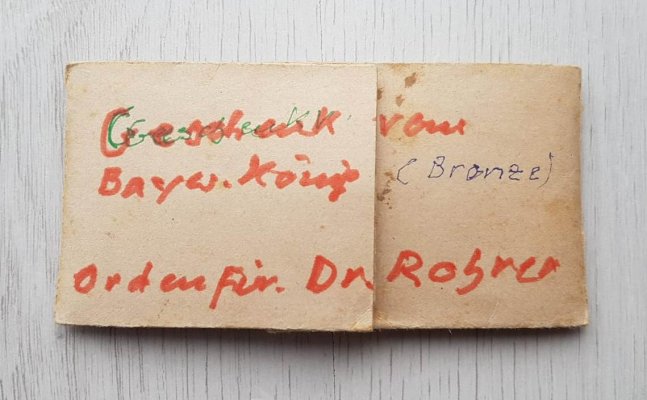 Geschenk vom
Bayer. König (Bronze)
Orden für. Dr. Rohrer